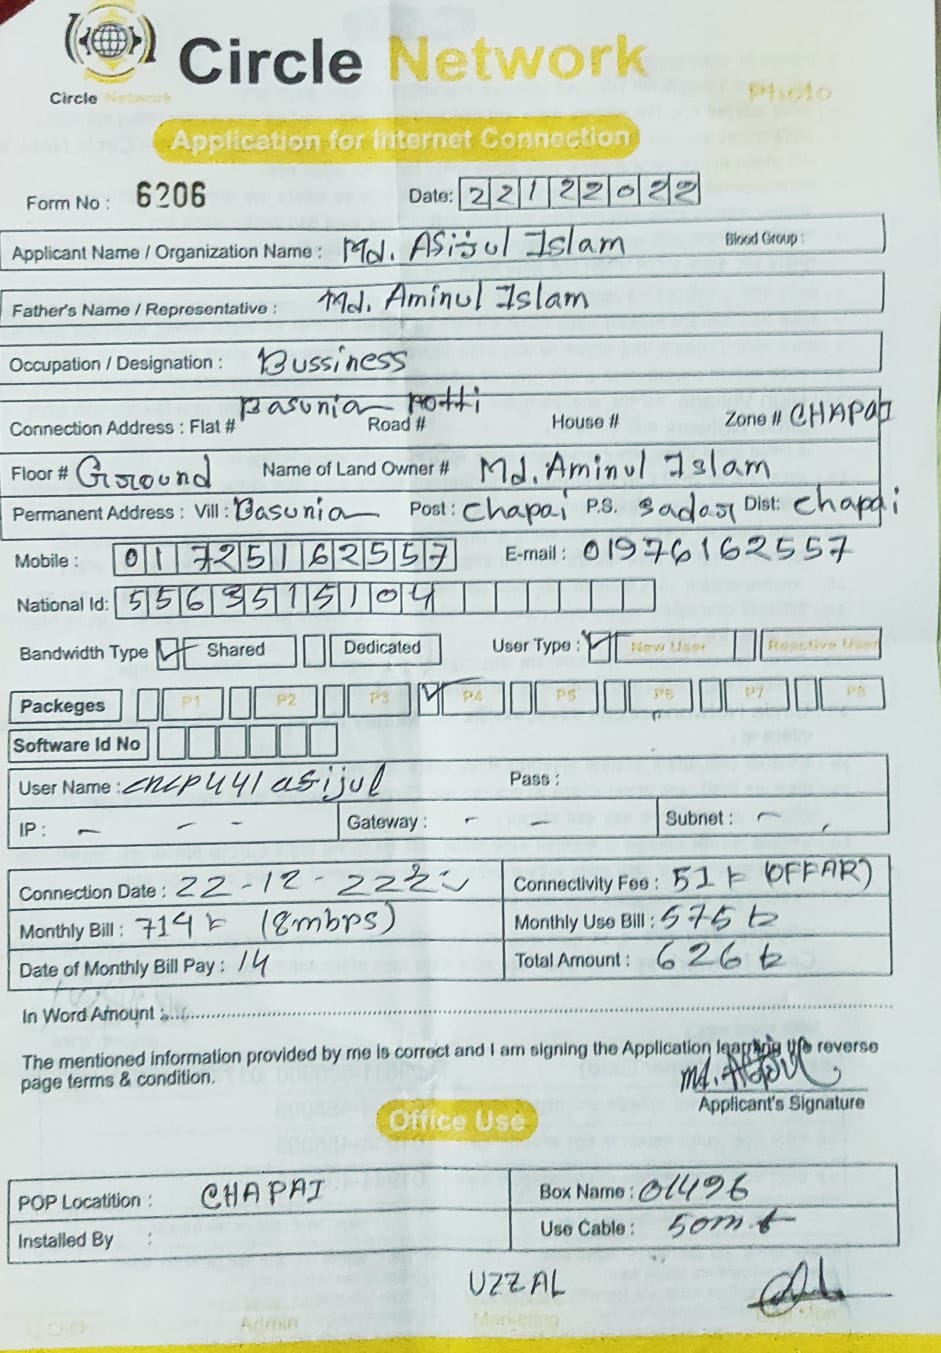 Circle Network
Circle Network
Photo
Application for Internet Connection
Form No : 6206 Date: 22122022
Applicant Name / Organization Name : Md. Asijul Islam Blood Group :
Father's Name / Representative : Md. Aminul Islam
Occupation / Designation : Bussiness
Basunia Potti
Connection Address : Flat # Road # House # Zone # CHAPAI
Floor # Ground Name of Land Owner # Md. Aminul Islam
Permanent Address : Vill : Basunia Post : Chapai P.S. Sadar Dist: Chapai
Mobile : 01725162557 E-mail : 01976162557
National Id: 5563515104
Bandwidth Type Shared Dedicated User Type : New User Reactive User
Packeges P1 P2 P3 P4 P5 P6 P7 P8
Software Id No
User Name : cncp441asijul Pass :
IP : - - - Gateway : - - Subnet : -
Connection Date : 22-12- Connectivity Fee : 51 (OFFAR)
Monthly Bill : 714 (8mbps) Monthly Use Bill : 575 tk
Date of Monthly Bill Pay : 14 Total Amount : 626 tk
In Word Amount :
The mentioned information provided by me is correct and I am signing the Application learning the reverse
page terms & condition.
Applicant's Signature
Office Use
POP Locatition : CHAPAI Box Name : 01496
Installed By : Use Cable : 50m
UZZAL
Admin Marketing